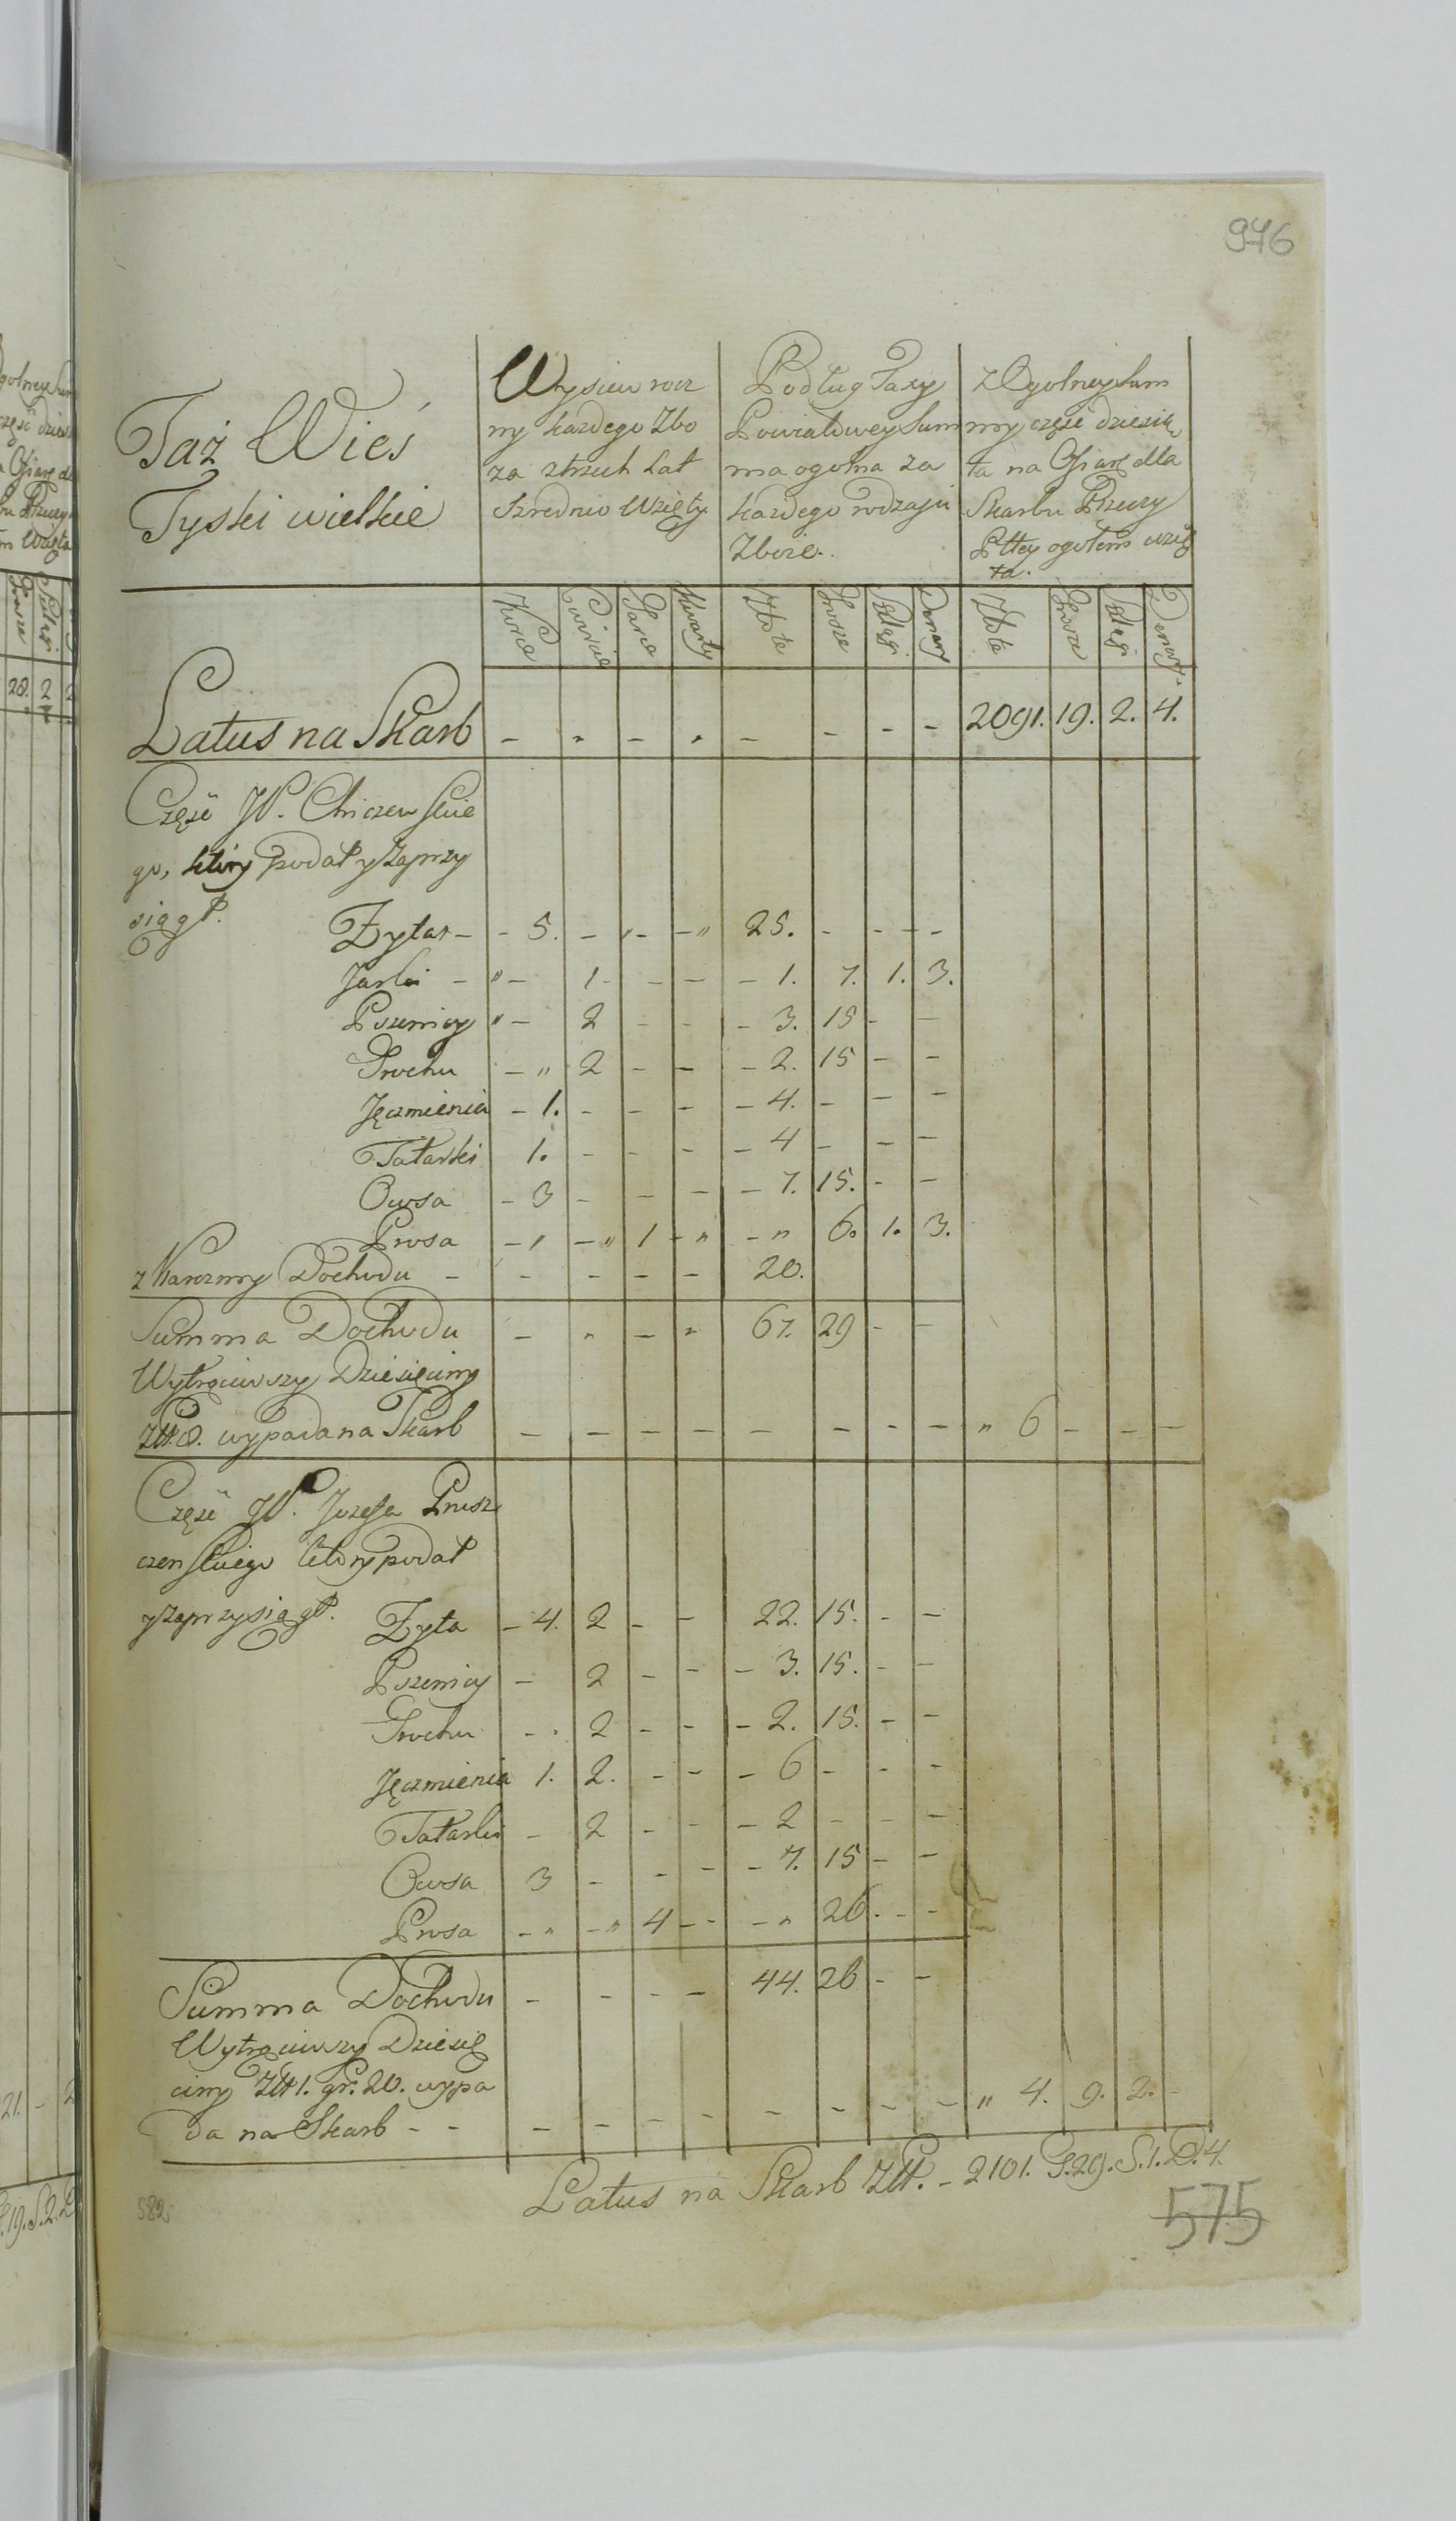 976
Taż Wieś
Tyski wielkie
Wysiew rocz
ny każdego Zbo
za ztrzech Lat
szrednio wzięty
Podług Taxy
Powiatowey Sum
ma ogolna za
każdego rodzaju
Zboże.
z Ogolney Sum
my część dziesią
ta na Ofiarę dla
Skarbu Rzeczy
Pltey ogołem wzię
ta.
Korce Cwierci Garce Kwarty Złote Grosze Szelągi Denary Złote Grosze Szelągi Denary
Latus na Skarb - " - " - - - - 2091. 19. 2. 4.
Część JP. Chiczewskie
go, ktory podał y zaprzy
siągł.
Zyta - - 5. - " - - " 25. - - - -
Jarki - " - 1 - - - - 1. 7. 1. 3.
Pszenicy " - 2 - - - 3. 15 - -
Grochu - " 2 - - - 2. 15 - -
Jęczmienia - 1. - - - - 4. - - -
Tatarki 1. - - - - 4 - - -
Owsa - 3 - - - - 7. 15. - -
Prosa - " - " 1 - " - " 6. 1. 3.
z Karczmy Dochodu - - - - - 20.
Summa Dochodu - " - " 67. 29 - -
Wytrąciwszy Dziesięciny
Złt. 8. wypada na Skarb - - - - - - - - " 6 - - -
Część JP. Jozefa Prusz
czenskiego ktory podał
y zaprzysiągł.
Zyta - 4. 2 - - 22. 15. - -
Pszenicy - 2 - - - 3. 15. - -
Grochu - . 2 - - - 2. 15. - -
Jęczmienia 1. 2. - - - 6 - - -
Tatarki - 2 - - - 2 - - -
Owsa 3 - - - - 7. 15 - -
Prosa - " - " 4 - - - " 26. - -
Summa Dochodu - - - - 44. 26 - -
Wytrąciwszy Dziesię
ciny Złt 1. gr. 20. wypa
da na Skarb - - - - - - - - - - " 4. 9. 2. -
Latus na Skarb Złt. - 2101. G. 29. S. 1. D. 4.
582
575